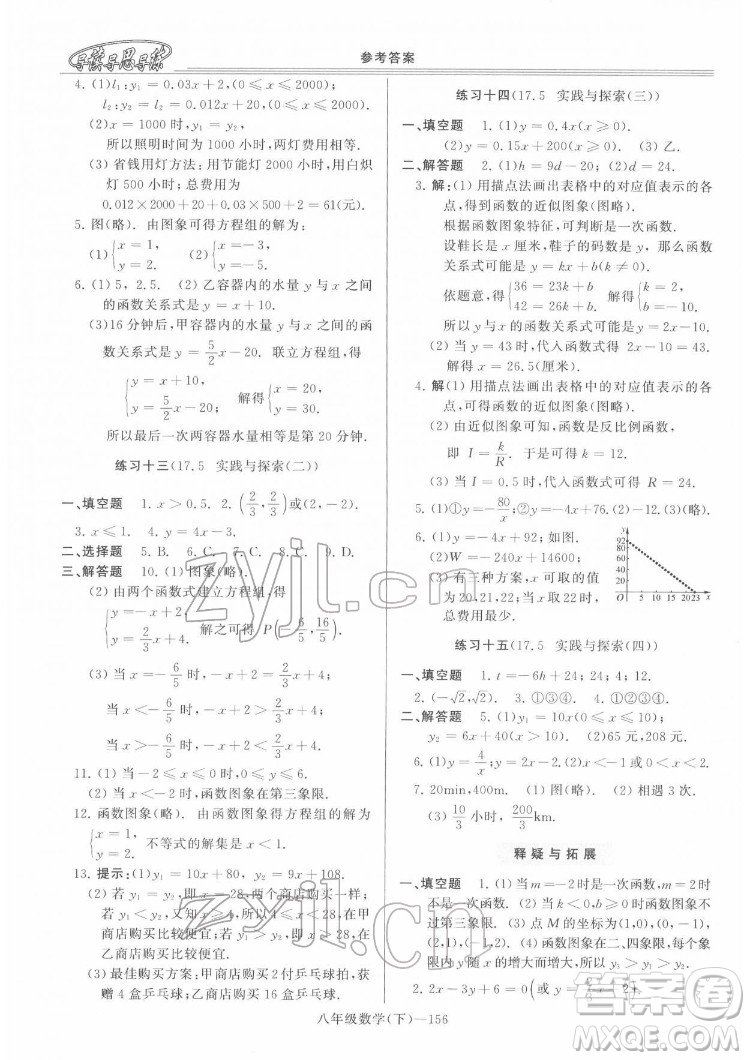 导读导思导练
参考答案
4. (1)l₁:y₁=0.03x+2,(0≤x≤2000);
l₂:y₂=0.012x+20,(0≤x≤2000)
(2)x=1000时,y₁=y₂
所以照明时间为1000小时,两灯费用相等.
(3)省钱用灯方法:用节能灯2000小时,用白炽
灯500小时;总费用为
0.012×2000+20+0.03×500+2=61(元).
5. 图(略). 由图象可得方程组的解为:
(1){x=1, y=2. (2){x=-3, y=-5.
6. (1)5,2.5. (2)乙容器内的水量y与x之间
的函数关系式是y=x+10.
(3)16分钟后,甲容器内的水量y与x之间的函
数关系式是y=5/2x-20. 联立方程组,得
{y=x+10, y=5/2x-20. 解得{x=20, y=30.
所以最后一次两容器水量相等是第20分钟.
练习十三(17.5 实践与探索(二))
一、填空题 1. x>0.5. 2. (2/3,2/3)或(2,-2).
3. x≤1. 4. y=4x-3.
二、选择题 5. B. 6. C. 7. C. 8. C. 9. D.
三、解答题 10. (1)图象(略).
(2)由两个函数式建立方程组,得
{y=-x+2, y=2/3x+4. 解之可得P(-6/5,16/5)
(3)当x=-6/5时,-x+2=2/3x+4.
当x<-6/5时,-x+2>2/3x+4.
当x>-6/5时,-x+2<2/3x+4.
11. (1)当-2≤x≤0时,-2≤y≤0.
(2)当x<-2时,函数图象在第三象限.
12. 函数图象(略). 由函数图象得方程组的解为
{x=1, y=1. 不等式的解集是x>1.
13. 提示:(1)y₁=10x+80,y₂=9x+108.
(2)若y₁=y₂,x=28,两个商店购买一样便宜;
若y₁<y₂,又知x≥4,所以4≤x<28,在甲
商店购买比较便宜;若y₁>y₂,x>28,在
乙商店购买比较便宜.
(3)最佳购买方案:甲商店购买2付乒乓球拍,
获赠4盒乒乓球;乙商店购买16盒乒乓球.
练习十四(17.5 实践与探索(三))
一、填空题 1. (1)y=0.4x(x≥0).
(2)y=0.15x+200(x≥0). (3)乙.
二、解答题 2. (1)h=9d-20. (2)d=24.
3. 解:(1)用描点法画出表格中的对应值表示的各
点,得到函数的近似图象(图略).
根据函数图象特征,可判断是一次函数.
设鞋长是x厘米,鞋子的码数是y,那么函数
关系式可设为y=kx+b(k≠0).
依题意,得{36=23k+b, 42=26k+b. 解得{k=2, b=-10.
所以y与x的函数关系式为y=2x-10.
(2)44码时,代入函数关系式得2x-10=44.
解得x=26.5(厘米).
4. 解(1)用描点法画出表格中的对应值表示的各
点,得到函数的近似图象(图略).
(2)由近似图象,可判断函数是反比例函数,
即I=k/R. 于是可得k=10.
(3)当I=0.5时,代入函数式可得R=20.
5. (1)①y=-80/x;②y=-4x+76.(2)-12.(3)4.
6. (1)y=-4x+92;如图.
(2)W=-240x+14600;
(3)有三种方案,x可取的值
为20,21,22,当x取22时,
总费用最少.
y
92
80
60
40
20
O 5 10 15 2023 x
练习十五(17.5 实践与探索(四))
一、填空题 1. t=-6h+24;24;4.
2. (-√2,√2). 3. ①③④. 4. ①③④.
二、解答题 5. (1)y₁=10x(0≤x≤10);
y₂=6x+40(x>10).(2)65元,208元.
6. (1)y=4/x;y=x. (2)-2<x<0或x<2.
7. (1)100km/h. 20min.(2)相遇3次.
(3)10/3小时,200/3km.
释疑与拓展
一、填空题 1. (1)当m=-2时是一次函数,当m≠-2时
不是一次函数. (2)3. (3)点M的坐标为(1,0),(0,1),
(2,1),(1,-2). (4)图象在二、四象限,每个象限内
y随x的增大而增大. (5)x=0
八年级数学(下)—156
zyjl.cn
zyjl.cn
答案圈